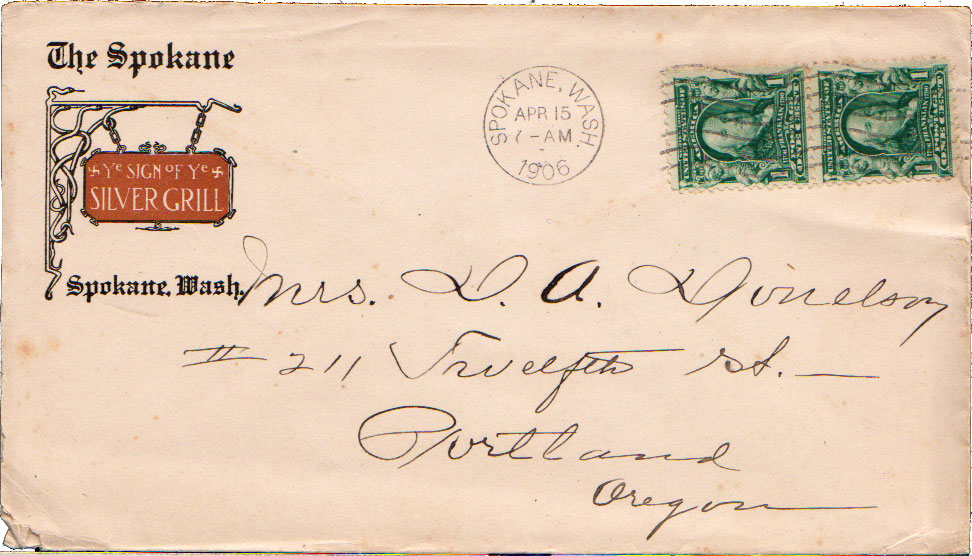 The Spokane
Ye SIGN OF Ye
SILVER GRILL
Spokane, Wash.
SPOKANE, WASH.
APR 15
7 - AM
1906
Mrs. D. A. Donelson
# 211 Twelfth St.
Portland
Oregon